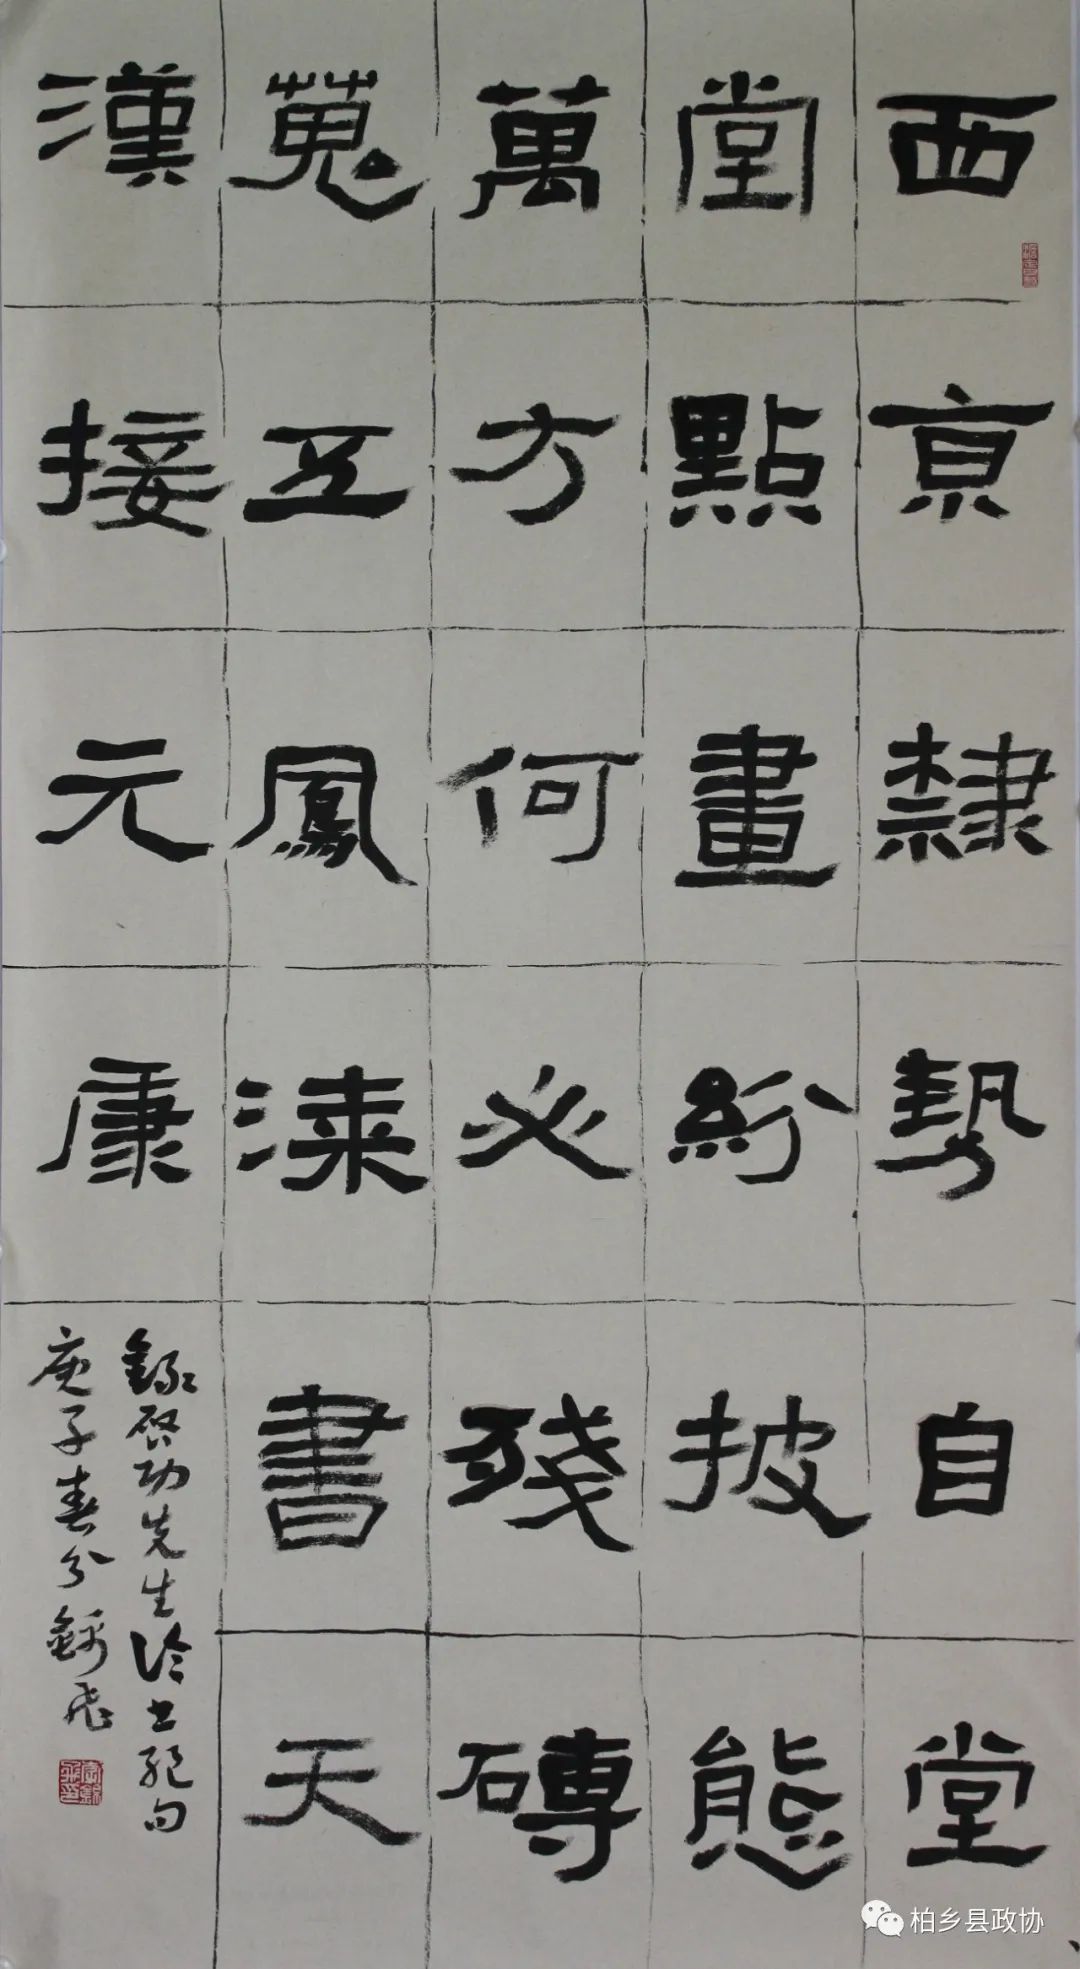 西京隸勢自堂
堂點畫紛披態
萬方何必殘磚
蒐五鳳漆書天
漢接元康
錄啓功先生论书絕句
庚子春分
柏乡县政协